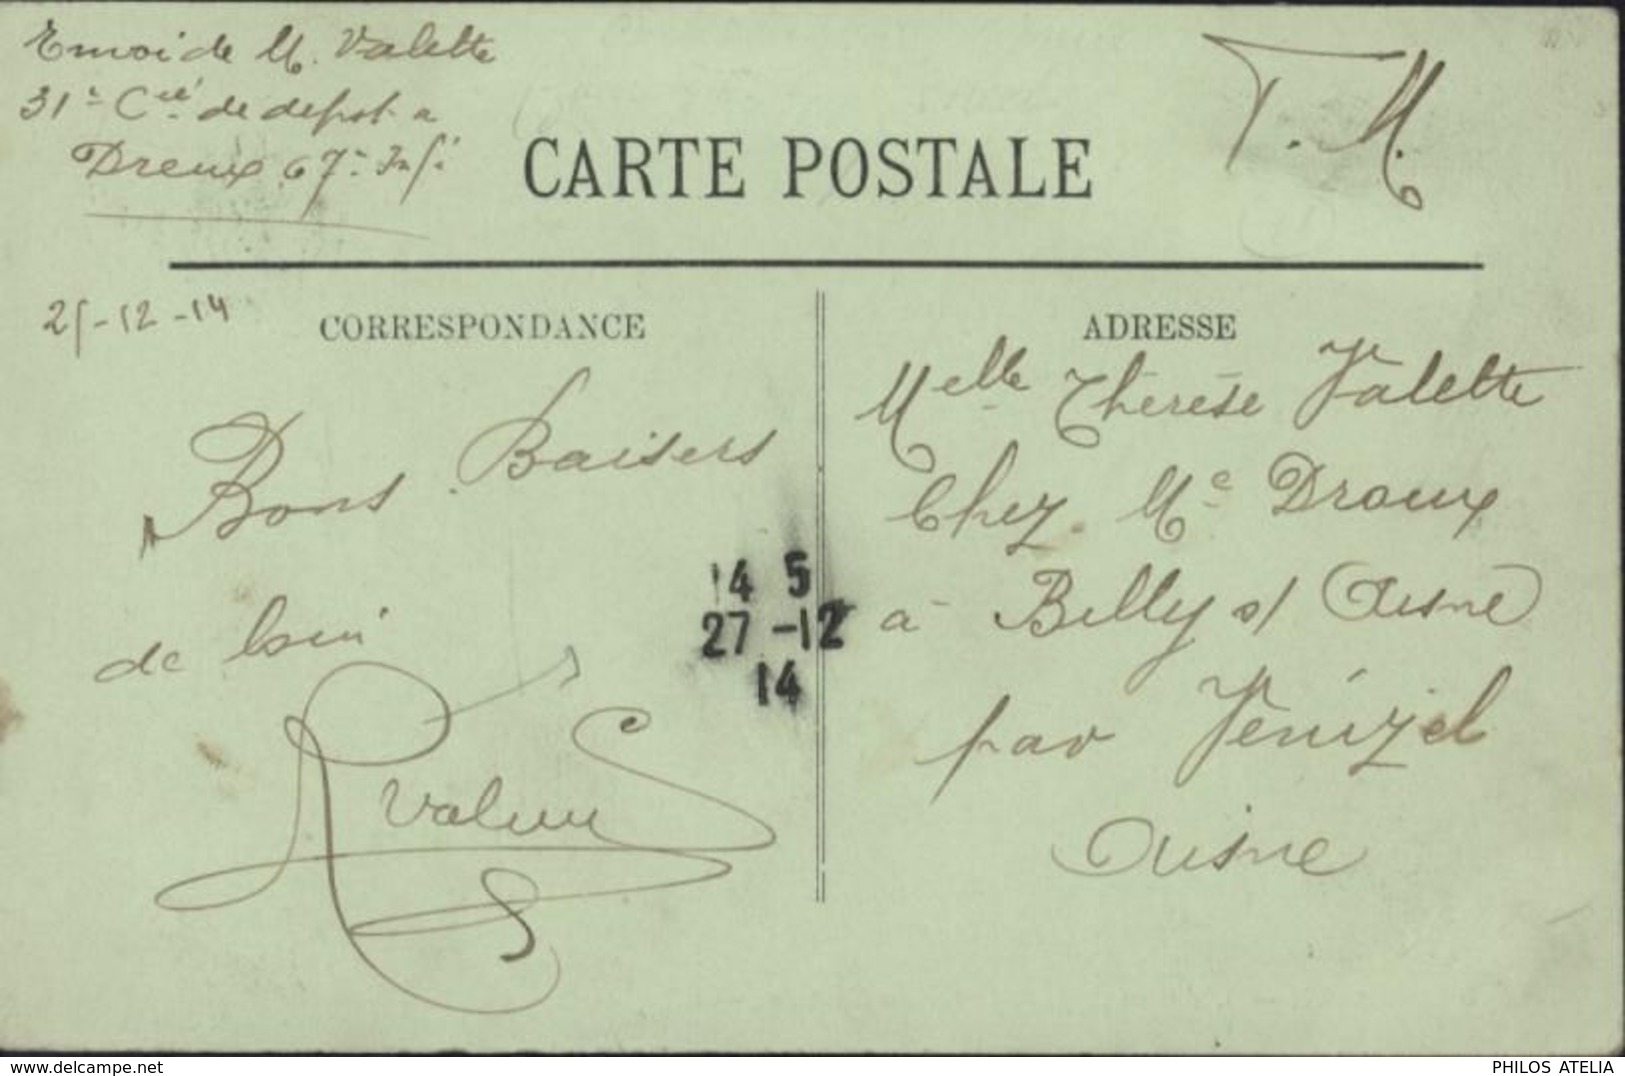 Envoi de M. Valette
31e Cie de depot a
Dreux 67e Inf.
F. M.
CARTE POSTALE
25-12-14
CORRESPONDANCE
ADRESSE
Bons Baisers
de loin
Melle Thérèse Valette
Chez Me Droux
à Billy s/ Aisne
par Vénizel
Aisne
14 5
27 -12
14
delcampe.net
PHILOS ATELIA